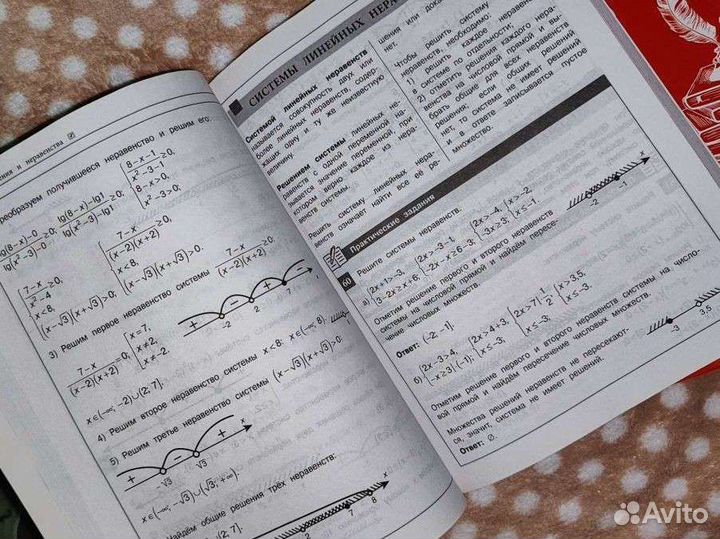 ния и неравенства
реобразуем получившееся неравенство и решим его:
lg(8−x)−0 / lg(x²−3)−0 ≥0; lg(8−x)−lg1 / lg(x²−3)−lg1 ≥0; { 8−x−1 / x²−3−1 ≥0, 8−x>0, x²−3>0;
{ 7−x / x²−4 ≥0, x<8, (x−√3)(x+√3)>0; { 7−x / (x−2)(x+2) ≥0, x<8, (x−√3)(x+√3)>0.
3) Решим первое неравенство системы 7−x / (x−2)(x+2) ≥0.
7−x / (x−2)(x+2) =0; { x=7, x≠2, x≠−2.
+ − + −
−2 2 7 x
x∈(−∞; −2)∪(2; 7].
4) Решим второе неравенство системы x<8: x∈(−∞; 8).
5) Решим третье неравенство системы (x−√3)(x+√3)>0:
+ − +
−√3 √3 x
x∈(−∞; −√3)∪(√3; +∞).
Найдём общие решения трёх неравенств:
7 8 x
; 7].
СИСТЕМЫ ЛИНЕЙНЫХ НЕРА
Системой линейных неравенств
называется совокупность двух или
более линейных неравенств, содер-
жащих одну и ту же неизвестную
величину.
Решением системы линейных не-
равенств с одной переменной на-
зывается значение переменной, при
котором верно каждое из нера-
венств системы.
Решить систему линейных нера-
венств означает найти все её ре-
шения или дока
нет.
Чтобы решить систему
неравенств, необходимо:
1) решить каждое неравенс
в системе по отдельности;
2) отметить решения каждого нера-
венства на числовой прямой и вы-
брать общие для всех неравенств
решения; если общих решений
нет, то система не имеет решений
и в ответе записывается пустое
множество.
Практические задания
60 Решите системы неравенств.
а) { 2x+1>−3, 3−2x≥x+6; { 2x>−3−1, −2x−x≥6−3; { 2x>−4, −3x≥3; { x>−2, x≤−1.
−2 −1 x
Отметим решение первого и второго неравенств
системы на числовой прямой и найдём пересе-
чение числовых множеств.
Ответ: (−2; −1].
б) { 2x−3>4, −x≥3|·(−1); { 2x>4+3, x≤−3; { 2x>7|·1/2, x≤−3; { x>3,5, x≤−3.
−3 3,5
Отметим решение первого и второго неравенств системы на число-
вой прямой и найдём пересечение числовых множеств.
Множества решений неравенств не пересекают-
ся, значит, система не имеет решений.
Ответ: ∅.
Avito